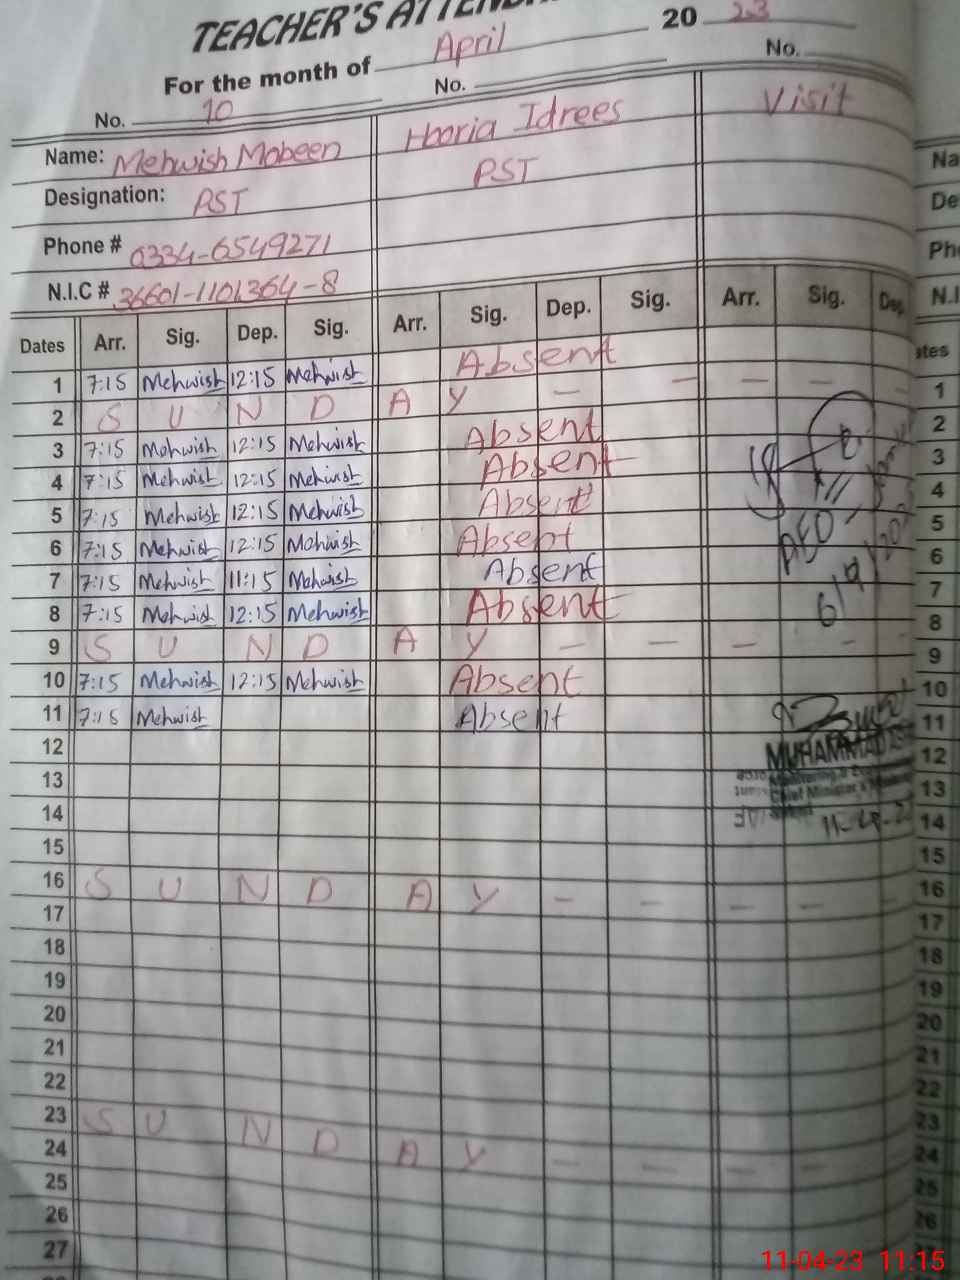 TEACHER'S
For the month of April 20 23
No. 10 No. No.
Name: Mehwish Mobeen Hooria Idrees Visit
Designation: PST PST
Phone # 0334-6549271
N.I.C # 36601-1101364-8
Dates Arr. Sig. Dep. Sig. Arr. Sig. Dep. Sig. Arr. Sig. Dep.
1 7:15 Mehwish 12:15 Mehwish Absent
2 S U N D A Y
3 7:15 Mehwish 12:15 Mehwish Absent
4 7:15 Mehwish 12:15 Mehwish Absent
5 7:15 Mehwish 12:15 Mehwish Absent
6 7:15 Mehwish 12:15 Mehwish Absent
7 7:15 Mehwish 11:15 Mehwish Absent
8 7:15 Mehwish 12:15 Mehwish Absent
9 S U N D A Y
10 7:15 Mehwish 12:15 Mehwish Absent
11 7:15 Mehwish Absent
12
13
14
15
16 S U N D A Y
17
18
19
20
21
22
23 S U N D A Y
24
25
26
27
AEO
MUHAMMAD
Chief Minister's
Na
De
Ph
N.I
ates
1
2
3
4
5
6
7
8
9
10
11
12
13
14
15
16
17
18
19
20
21
22
23
24
25
26
11-04-23 11:15